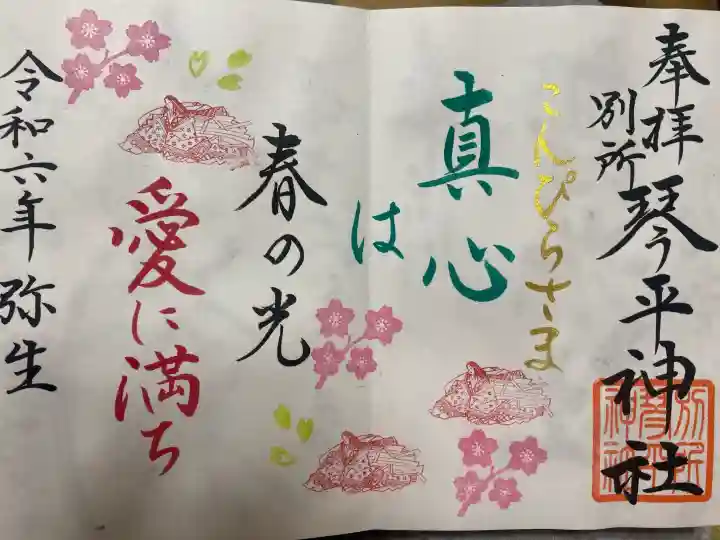 奉拝
別所
琴平神社
こんぴらさま
真心
は
春の光
愛に満ち
令和六年弥生